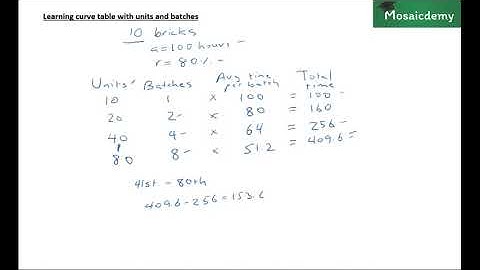 Learning curve table with units and batches
Mosaicdemy
10 bricks
a=100 hours
r = 80%
Units Batches Avg time per batch Total time
10 1 x 100 = 100
20 2 x 80 = 160
40 4 x 64 = 256
80 8 x 51.2 = 409.6
41st - 80th
409.6 - 256 = 153.6